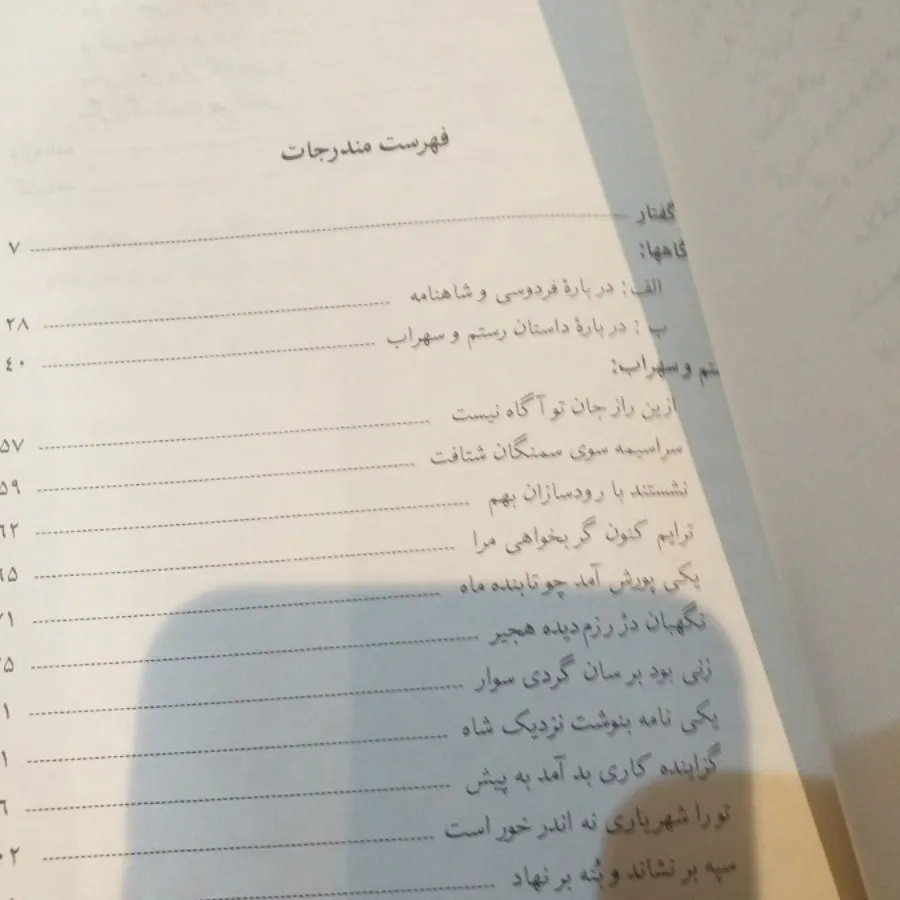 فهرست مندرجات
گفتار ۷
گاهها:
الف: دربارهٔ فردوسی و شاهنامه ۲۸
ب: دربارهٔ داستان رستم و سهراب ۴۰
ستم و سهراب:
ازین راز جان تو آگاه نیست ۵۷
سراسیمه سوی سمنگان شتافت ۵۹
نشستند با رودسازان بهم ۶۲
ترایم کنون گر بخواهی مرا ۶۵
یکی پورش آمد چو تابنده ماه ۷۱
نگهبان دژ رزم‌دیده هجیر ۵
زنی بود بر سان گردی سوار ۱
یکی نامه بنوشت نزدیک شاه ۱
گزاینده کاری بد آمد به پیش ۶
تو را شهریاری نه اندر خور است ۰۲
سپه بر نشاند و بُنه بر نهاد